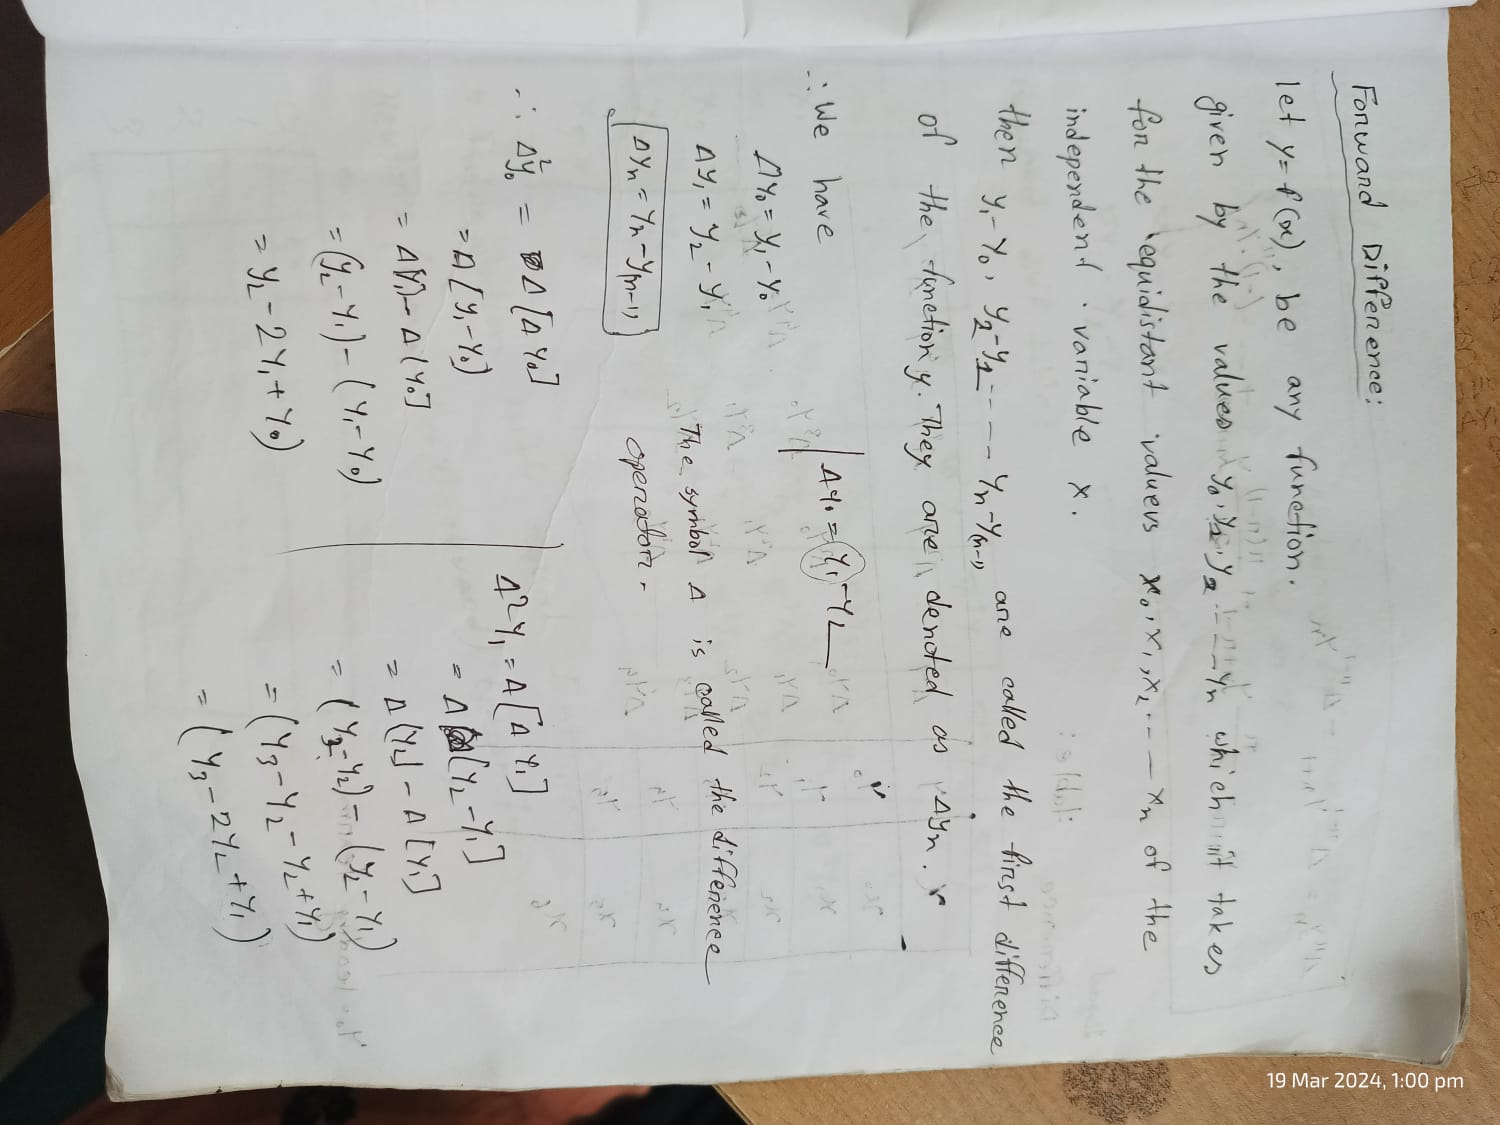 Forward Difference:
let y = f(x), be any function.
given by the values y₀, y₁, y₂ - - - yₙ which it takes
for the equidistant values x₀, x₁, x₂ - - - xₙ of the
independent variable x.
then y₁-y₀, y₂-y₁ - - - yₙ-y₍ₙ₋₁₎ are called the first difference
of the function y. They are denoted as Δyₙ.
∴ We have
Δy₁ = y₁ - y₂
Δy₀ = y₁ - y₀
Δy₁ = y₂ - y₁
Δyₙ = yₙ - y₍ₙ₋₁₎
The symbol Δ is called the difference
operator.
∴ Δ²y₀ = Δ[Δy₀]
= Δ[y₁-y₀)
= Δ(y₁) - Δ(y₀]
= (y₂-y₁) - (y₁-y₀)
= y₂ - 2y₁ + y₀)
Δ²y₁ = Δ[Δy₁]
= Δ[y₂-y₁]
= Δ(y₂] - Δ[y₁]
= (y₃-y₂) - (y₂-y₁)
= (y₃ - y₂ - y₂ + y₁)
= (y₃ - 2y₂ + y₁)
19 Mar 2024, 1:00 pm